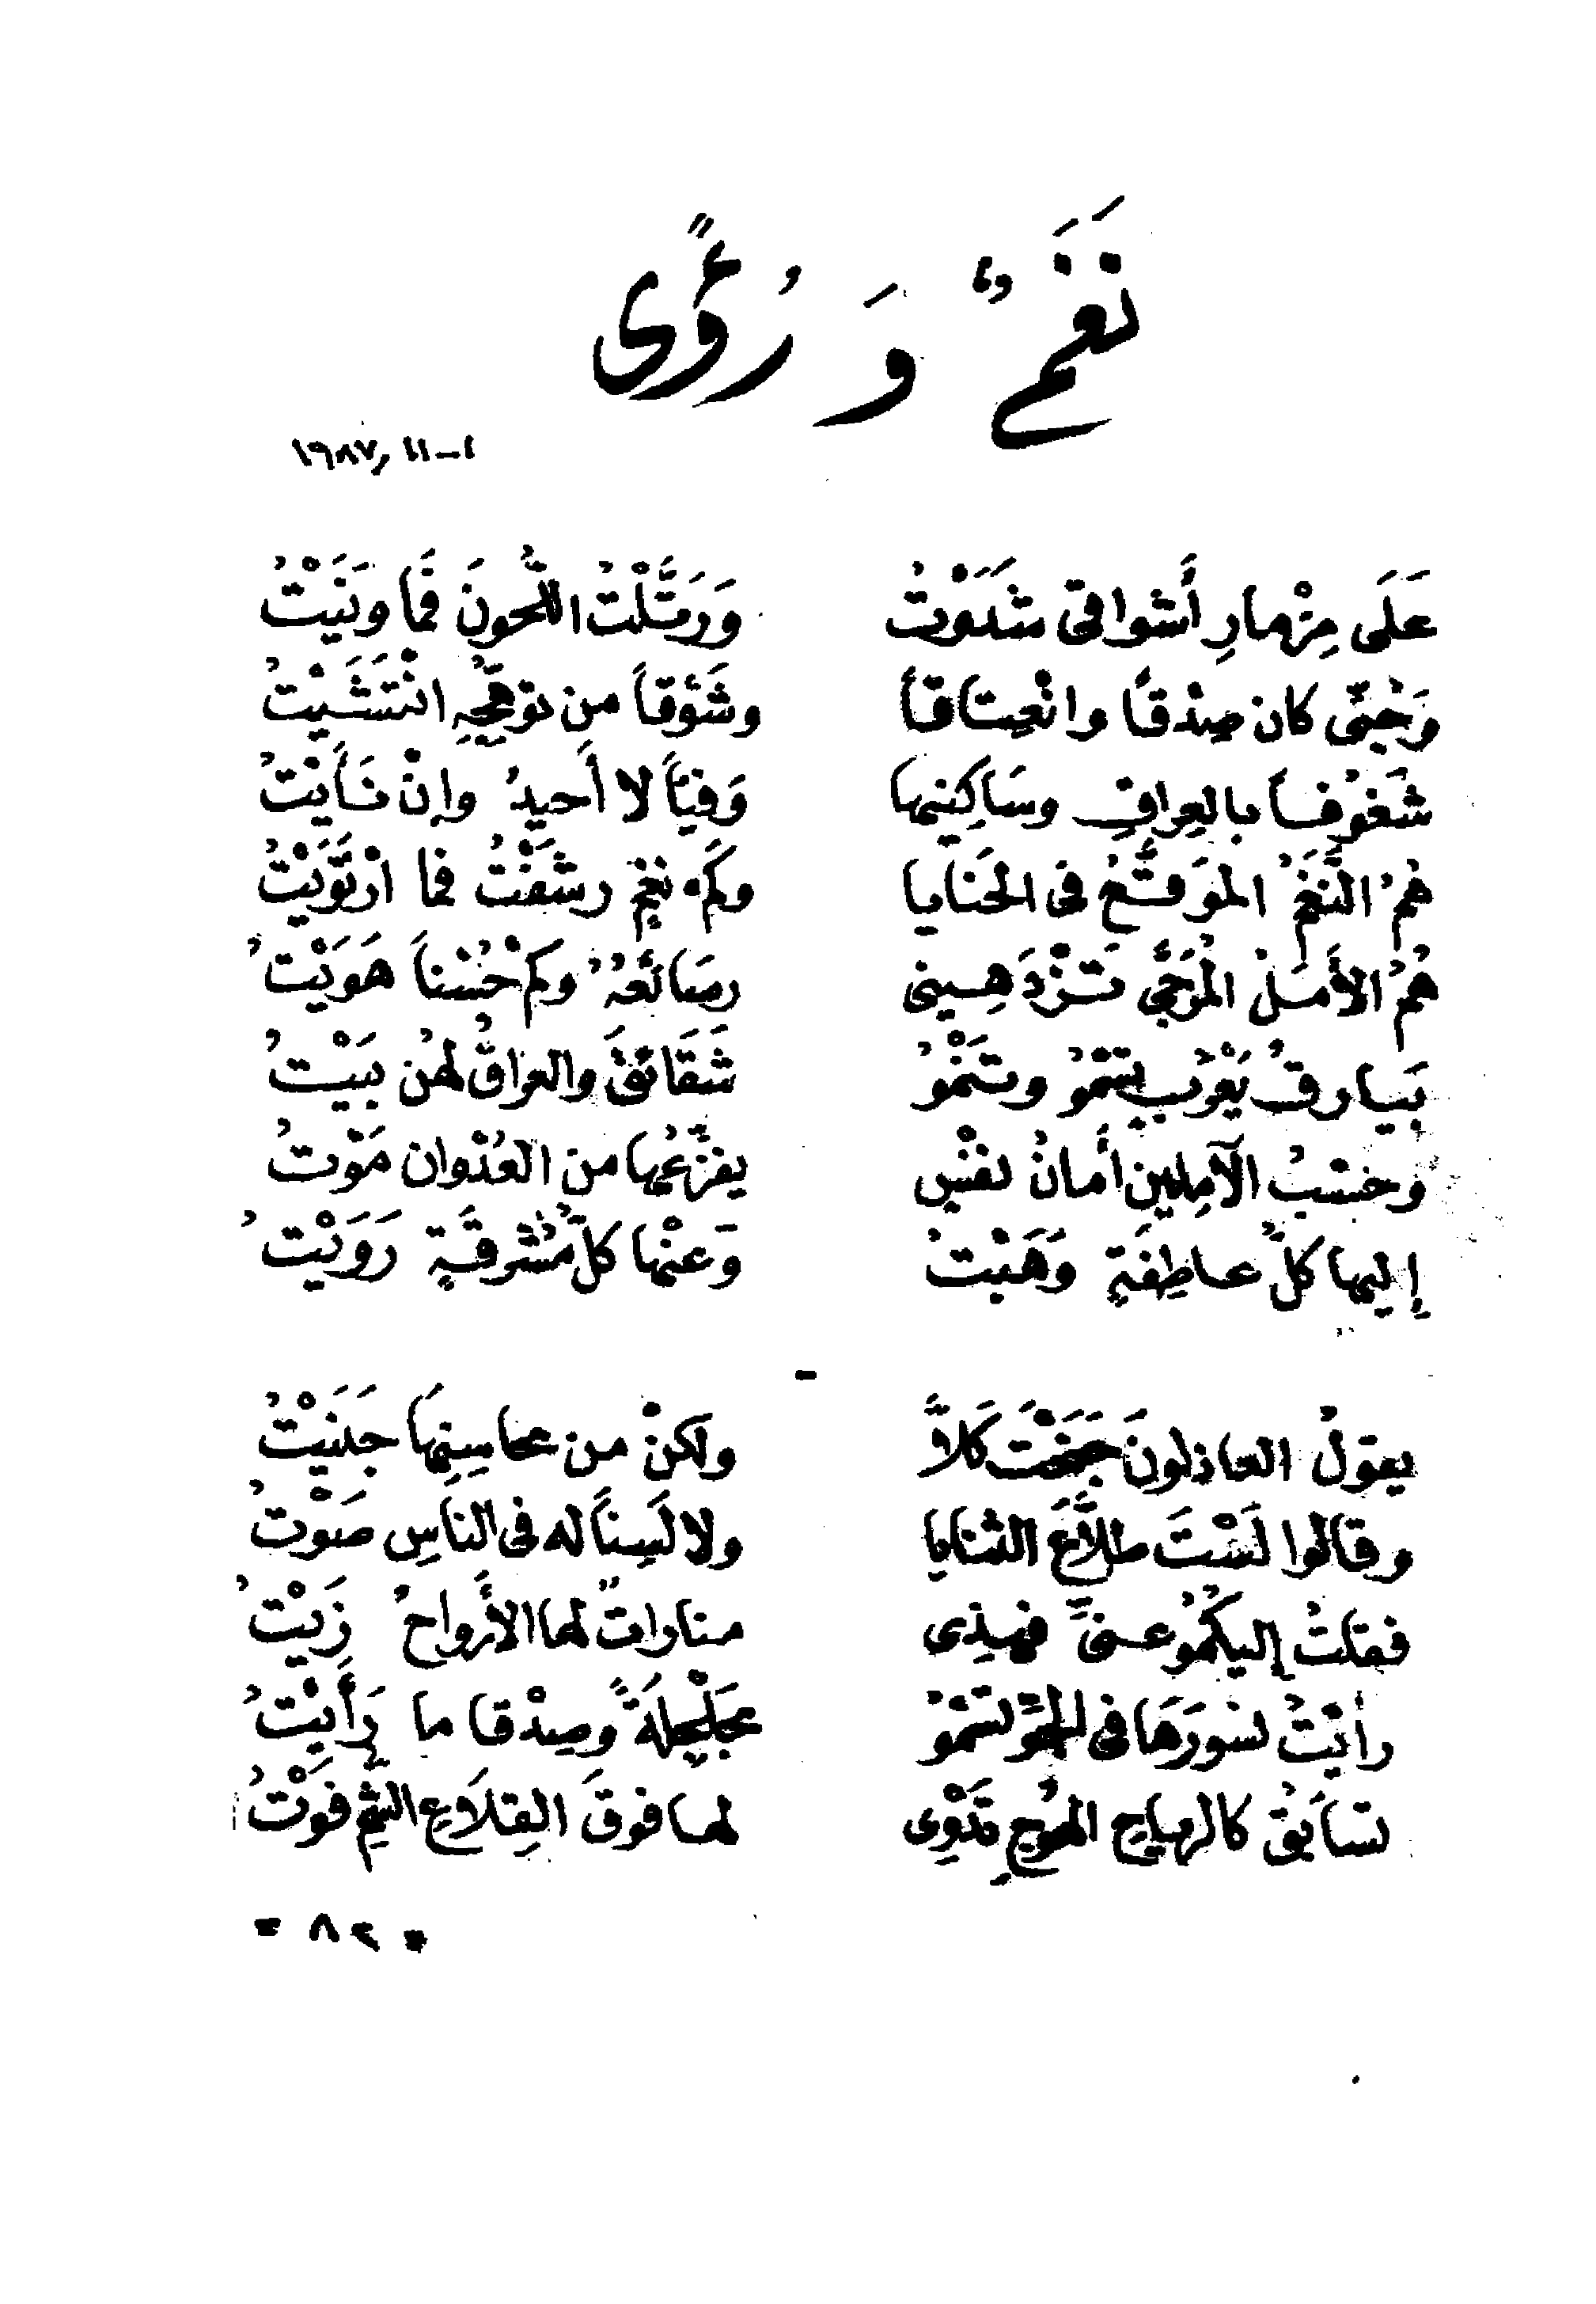 نَغَمٌ وَ رُؤًى
١-١١/١٩٨٧
عَلَى مِزْمارِ أَشواقى شَدَوْتُ وَرَتَّلْتُ اللُّحونَ فَما وَنَيْتُ
وَحُبِّى كان صِدْقاً وانْعِتاقاً وشَوْقاً من تَوَهُّجِهِ انْتَشَيْتُ
شَغوُفاً بالعِراقِ وسَاكِنيها وَفِيّاً لا أَحيدُ وإنْ نَأَيْتُ
هُمُ النَّغَمُ الموَقَّعُ فى الحَنايا وكَمْ نغمٍ رشَفْتُ فما ارْتَوَيْتُ
هُمُ الأَمَلُ المُرَجَّى تَزْدَهِينى رضائعُهُ وكَمْ حُسْناً هَوَيْتُ
بَيارقُ يَعْرُبٍ تسْمُو وتَنْمُو شَقَائقَ والعراقُ لهُن بَيْتُ
وَحَسْبُ الآمِلين أَمانُ نفْسٍ يفزِّعُها من العُدْوان مَوْتُ
إليها كلَّ عاطِفَةٍ وَهَبْتُ وَعنْها كلَّ مُشْرقَةٍ رَوَيْتُ
يقولُ العاذلونَ جَمَحْتَ كَلاَّ ولكنْ من محاسِنِهَا جَنَيْتُ
وقالوا لَسْتَ طلاَّعَ الثنايا ولا لَسِناً له فى الناسِ صَوْتُ
فقلتُ إليكُمُو عنىِّ فهذِى مناراتٌ لها الأَرواحُ زَيْتُ
رأيْتُ نسورَهَا فى الجَوِّ تسْمُو مجَلْجِلَةً وصِدْقا ما رَأَيْتُ
تسابَقُ كالرياحِ الهُوجِ تَدْوِى لها فوقَ القِلاَعِ الشُّمِّ فَوْتُ
- ٨٢ -